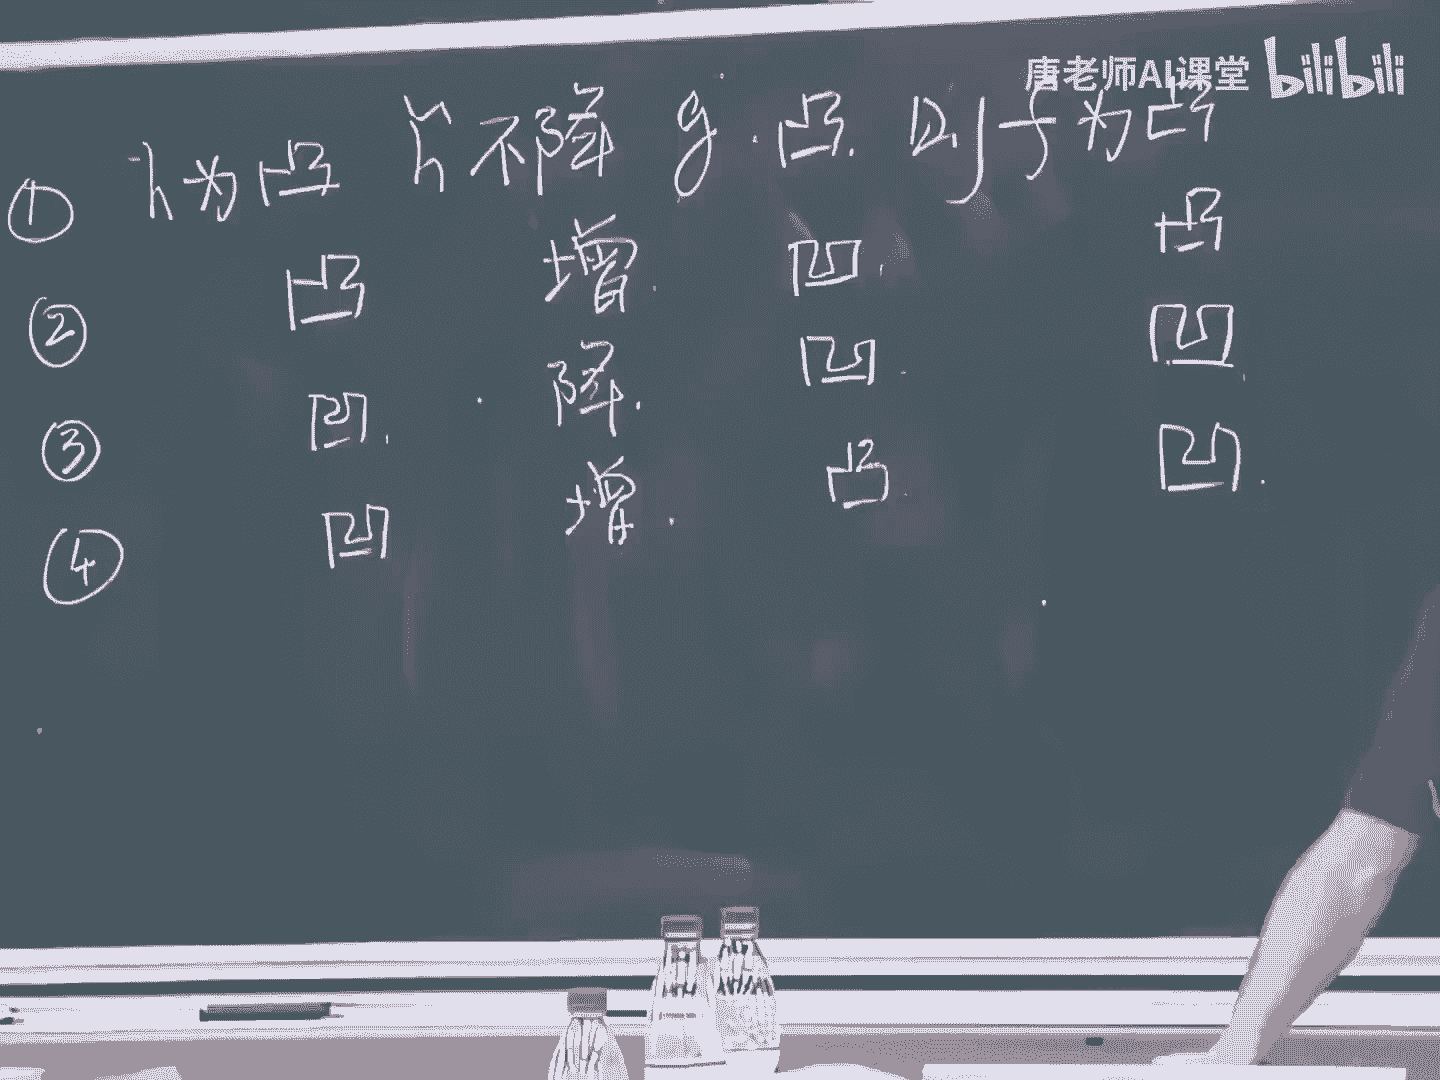 唐老师AI课堂 bilibili
① h为凸 h̃不降 g.凸. 则f为凸
② 凸 增. 凹. 凸
③ 凹. 降. 凹. 凹
④ 凹 增. 凸. 凹.